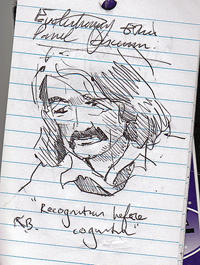 Evolutionary Ethics
Panel Discussion.
"Recognition before
R.B. cognition"